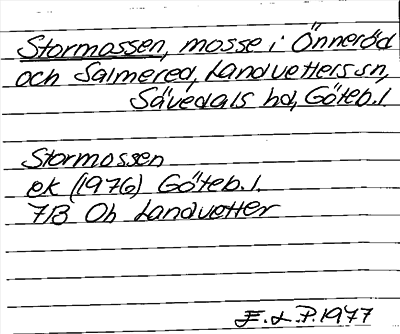 Stormossen, mosse i Önneröd
och Salmered, Landvetters sn,
Sävedals hd, Göteb. l
Stormossen
ek (1976) Göteb. l.
7B Oh Landvetter
E. L. P. 1977